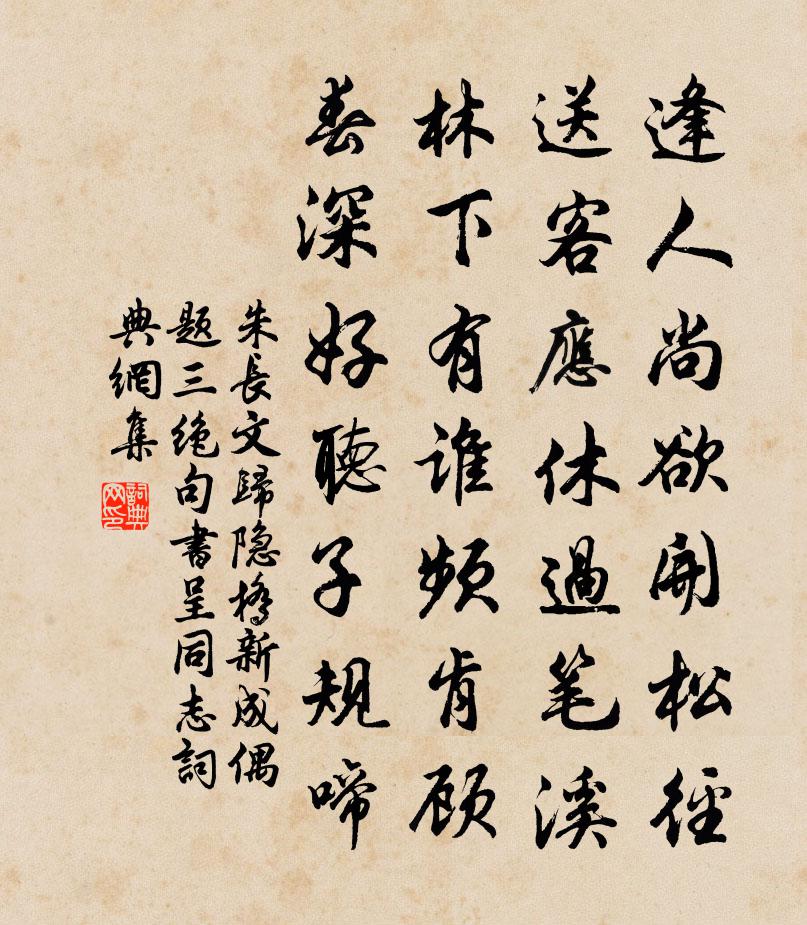 逢人尚欲開松徑
送客應休過笔溪
林下有谁频肯顾
春深好聽子規啼
朱長文歸隐橋新成偶
题三绝句書呈同志詞
典網集
詞典网印